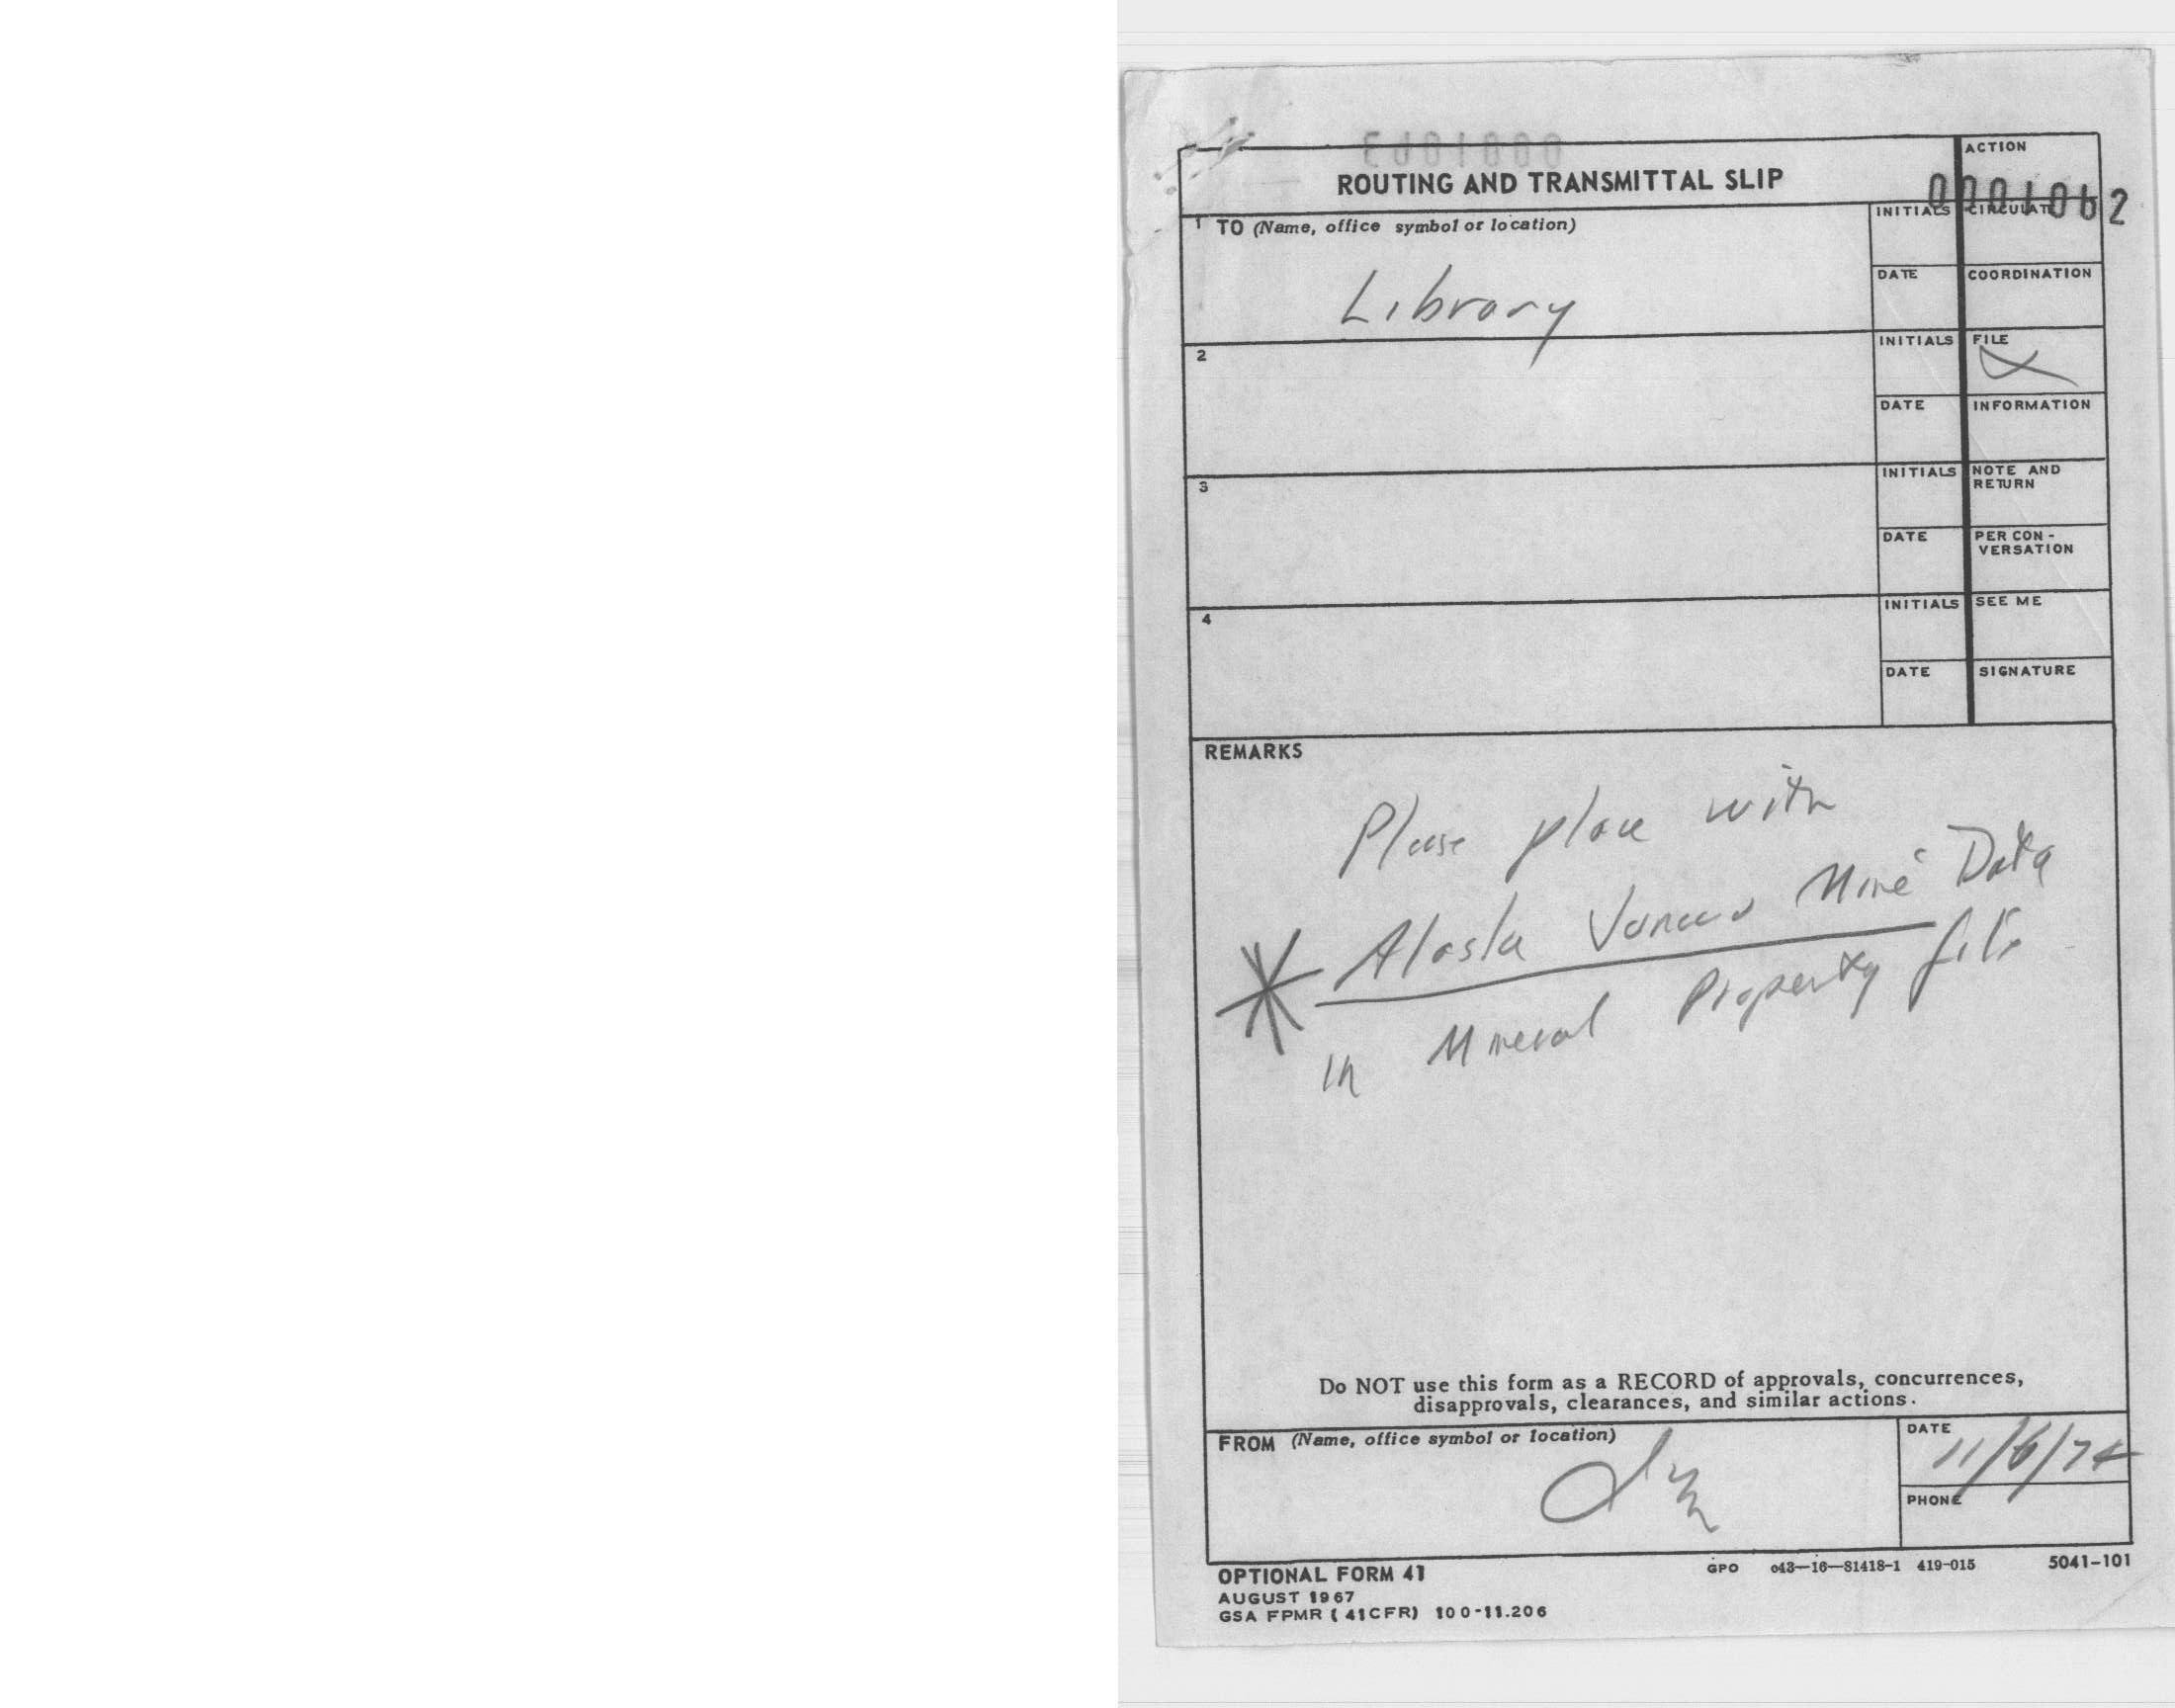 ROUTING AND TRANSMITTAL SLIP
ACTION
0001062
1 TO (Name, office symbol or location)
INITIALS
CIRCULATE
Library
DATE
COORDINATION
2
INITIALS
FILE
X
DATE
INFORMATION
3
INITIALS
NOTE AND
RETURN
DATE
PER CON-
VERSATION
4
INITIALS
SEE ME
DATE
SIGNATURE
REMARKS
Please place with
* Alaska Mine Data
in Mineral Property file
Do NOT use this form as a RECORD of approvals, concurrences,
disapprovals, clearances, and similar actions.
FROM (Name, office symbol or location)
DATE
11/6/74
PHONE
OPTIONAL FORM 41
AUGUST 1967
GSA FPMR (41CFR) 100-11.206
GPO o43—16—81418-1 419-015
5041-101